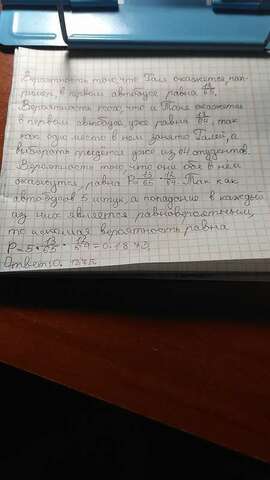 Вероятность того, что Галя окажется, нап-
ример, в первом автобусе, равна 13/65.
Вероятность того, что и Таня окажется
в первом автобусе уже равна 12/64, так
как одно место в нем занято Галей, а
выбирать придется уже из 64 студентов.
Вероятность того, что они обе в нем
окажутся, равна P=13/65·12/64. Так как
автобусов 5 штук, а попадание в каждый
из них является равновероятным,
то искомая вероятность равна
P=5·13/65·12/64=0.1875
Ответ: 0.1875